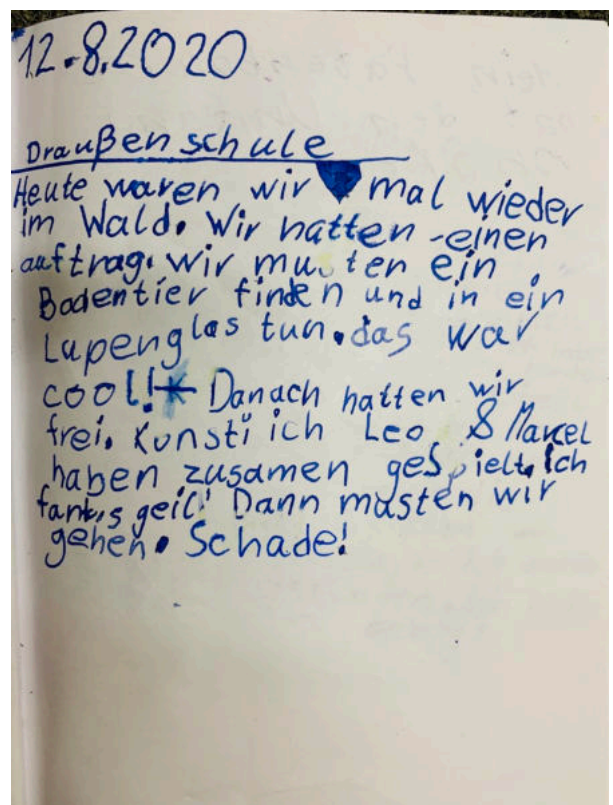 12.8.2020
Draußenschule
Heute waren wir mal wieder
im Wald. Wir hatten einen
auftrag. wir musten ein
Bodentier finden und in ein
Lupenglas tun. das war
cool! Danach hatten wir
frei. Konsti ich Leo & Marcel
haben zusamen gespielt. ich
fants geil! Dann musten wir
gehen. Schade!